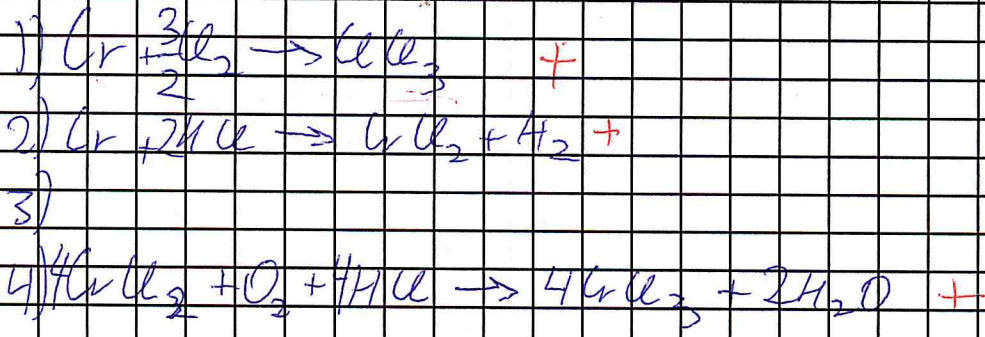 1) Cr + 3/2 Cl₂ → CrCl₃ +
2) Cr + 2HCl → CrCl₂ + H₂ +
3)
4) 4CrCl₂ + O₂ + 4HCl → 4CrCl₃ + 2H₂O +